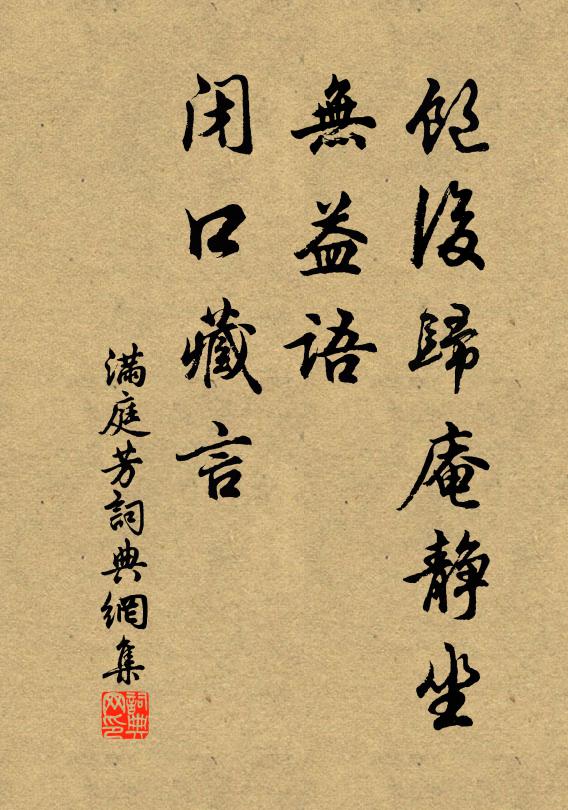 飽後歸庵静坐
無益語
闭口藏言
滿庭芳詞典網集
詞典
网印